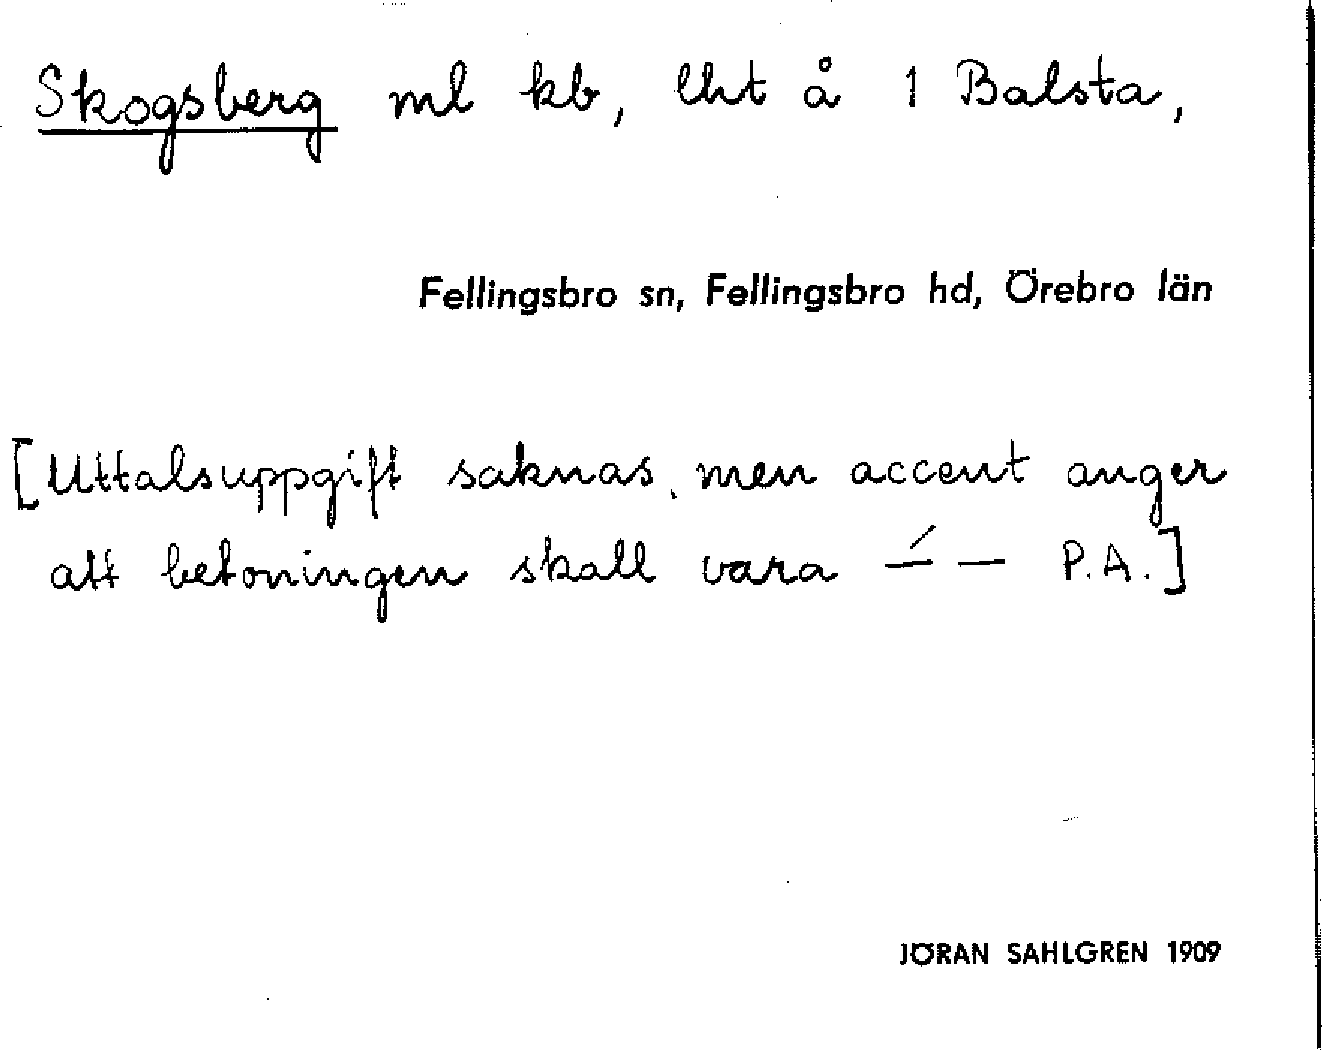 Skogsberg ml kb, lht å 1 Balsta,
Fellingsbro sn, Fellingsbro hd, Örebro län
[Uttalsuppgift saknas, men accent anger
att betoningen skall vara –́ – P.A.]
JÖRAN SAHLGREN 1909